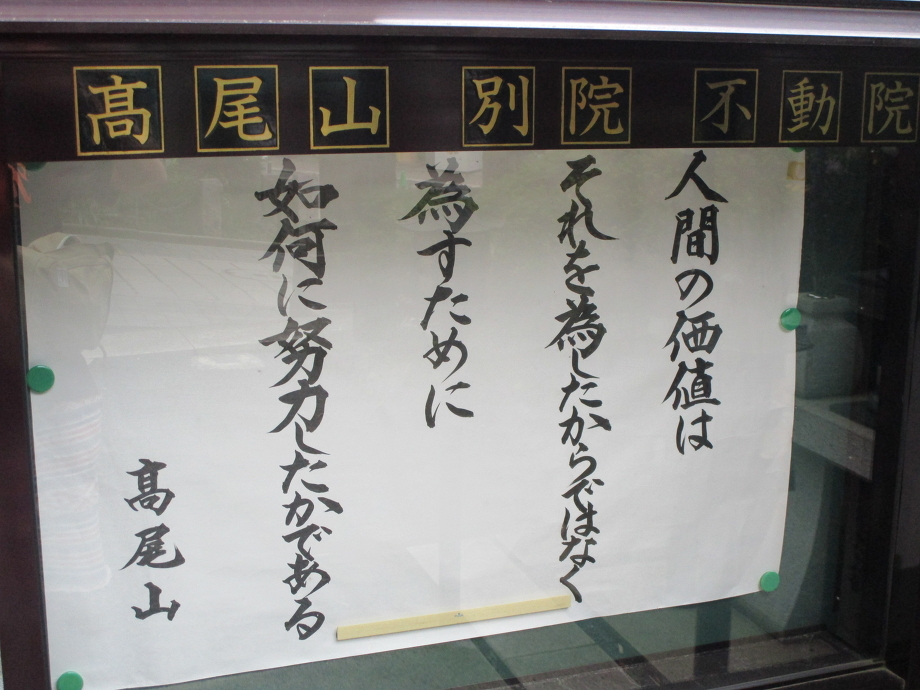 髙尾山 別院 不動院
人間の価値は
それを為したからではなく
為すために
如何に努力したかである
髙尾山